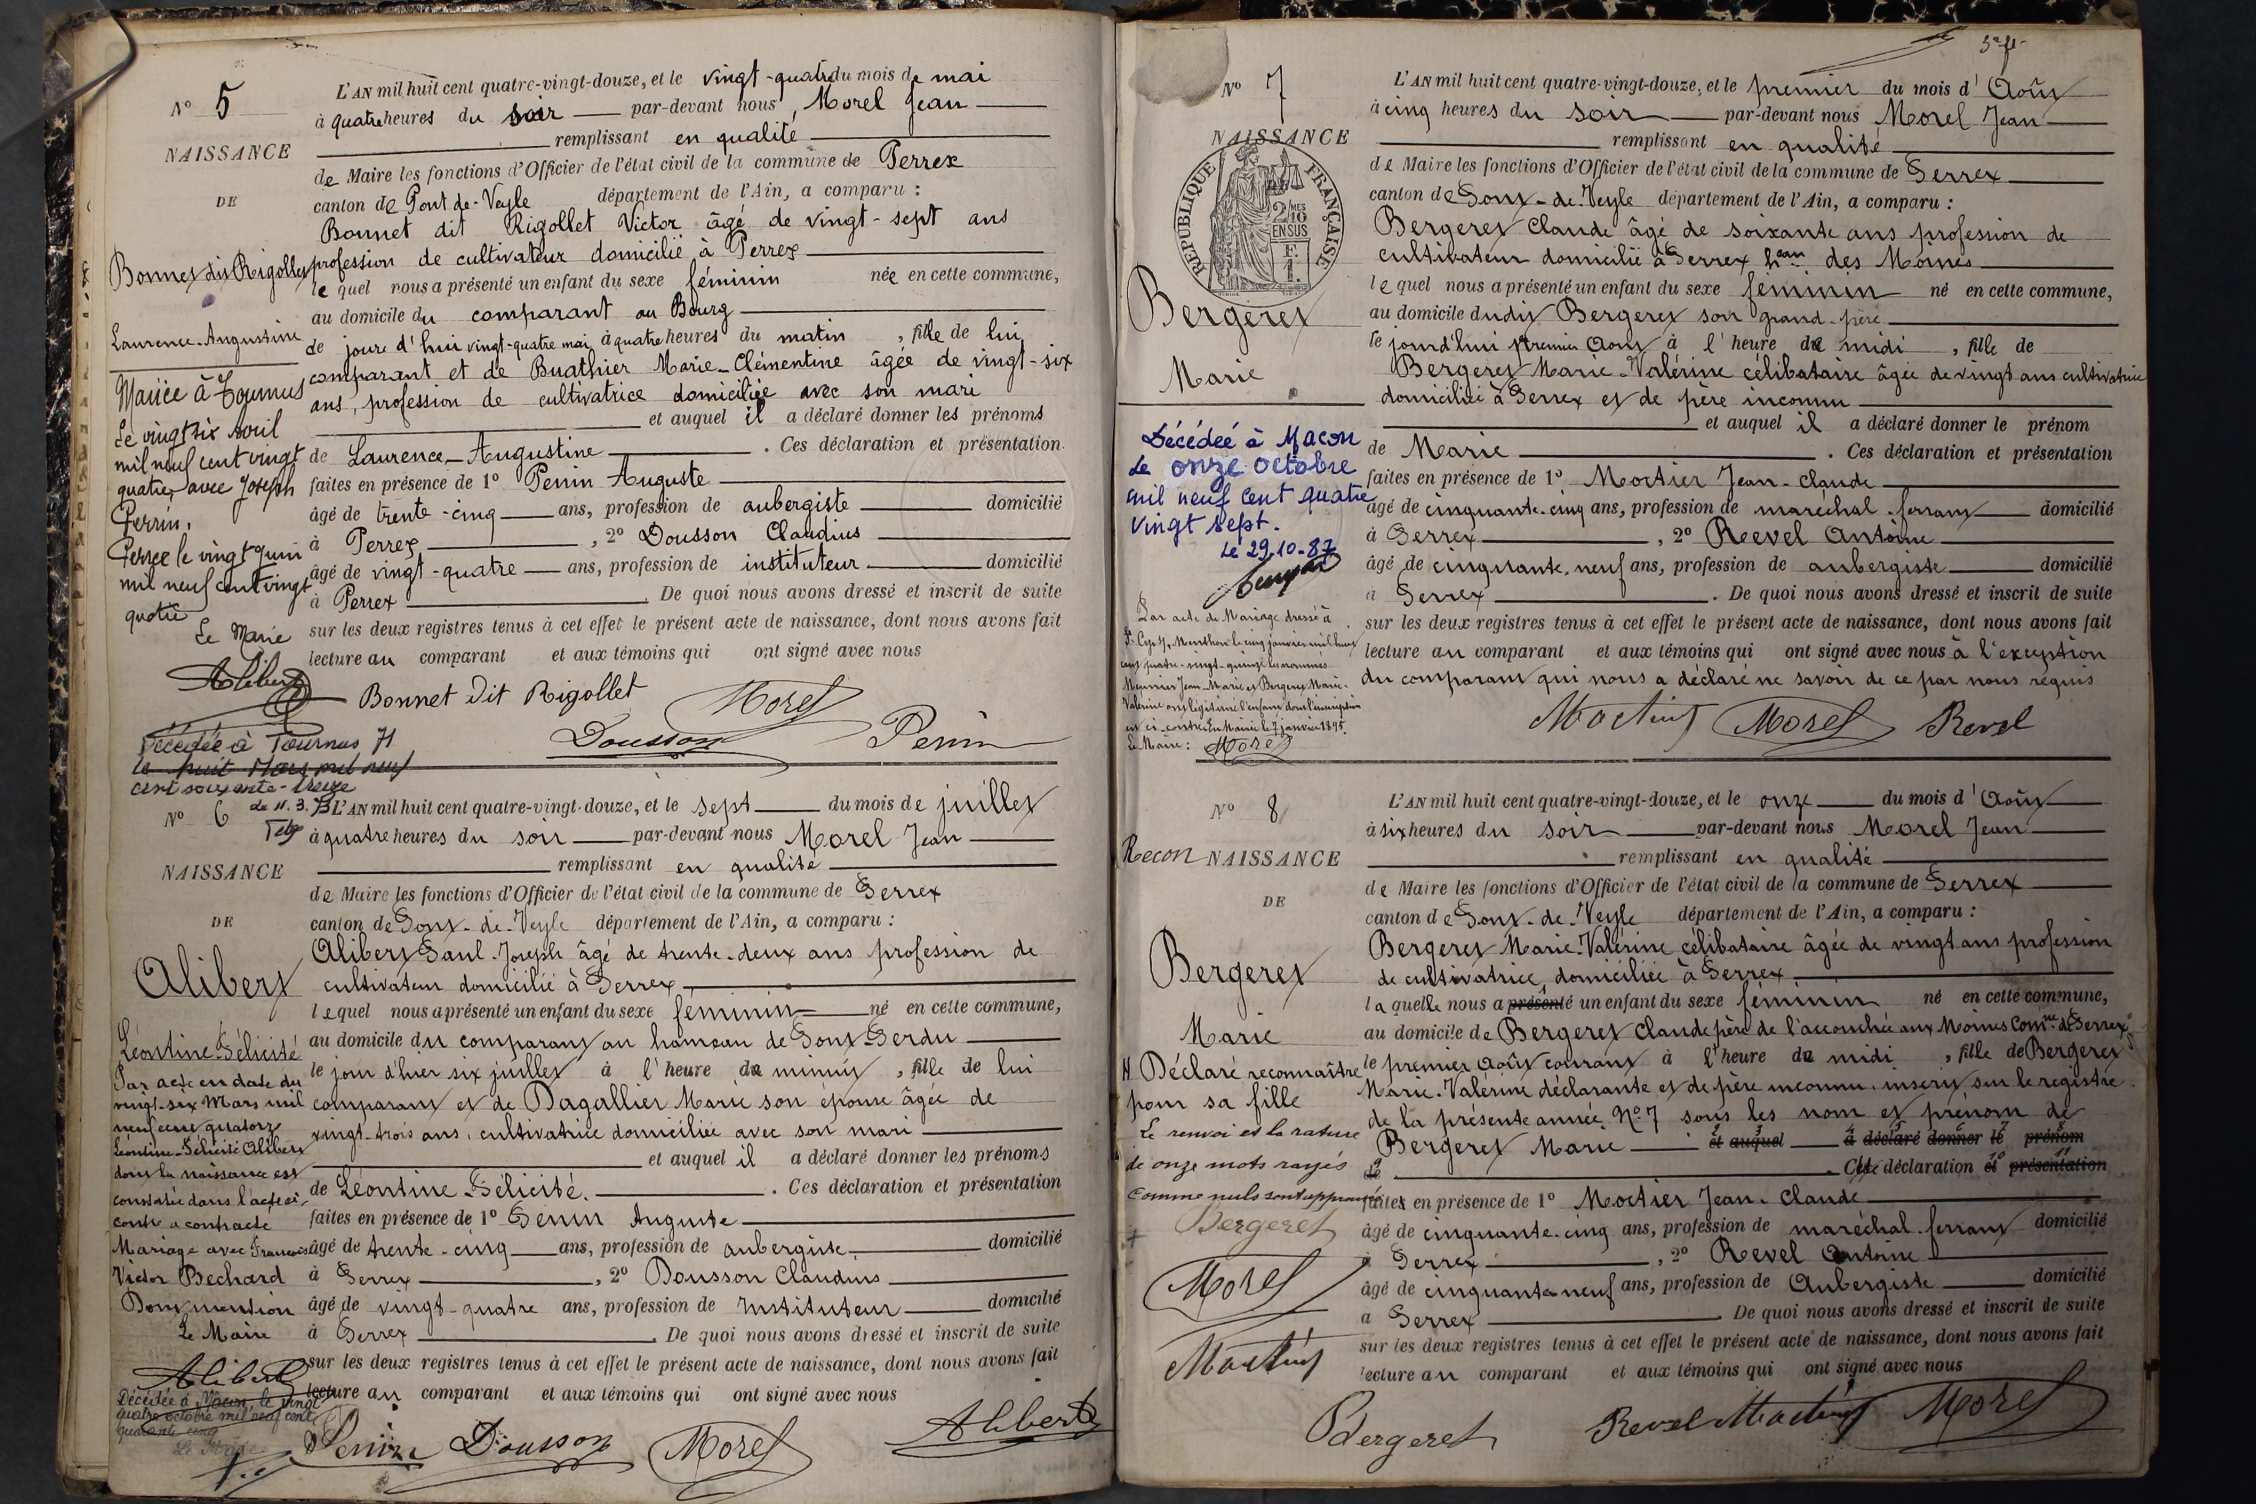 N° 5
NAISSANCE
DE
Bonnet dit Rigollet
Laurence-Augustine
Mariée à Tournus
Le vingt six avril
mil neuf cent vingt
quatre, avec Joseph
Perrin.
Perrex le vingt juin
mil neuf cent vingt
quatre
Le Maire
Alibert
Décédée à Tournus 71
le huit Mars mil neuf
cent soixante-treize
L'AN mil huit cent quatre-vingt-douze, et le vingt-quatre du mois de mai
à quatre heures du soir par-devant nous, Morel Jean
remplissant en qualité
de Maire les fonctions d'Officier de l'état civil de la commune de Perrex
canton de Pont-de-Veyle département de l'Ain, a comparu :
Bonnet dit Rigollet Victor âgé de vingt-sept ans
profession de cultivateur domicilié à Perrex
lequel nous a présenté un enfant du sexe féminin née en cette commune,
au domicile du comparant au Bourg
de jourd'hui vingt-quatre mai à quatre heures du matin, fille de lui
comparant et de Buathier Marie-Clémentine âgée de vingt-six
ans, profession de cultivatrice domiciliée avec son mari
et auquel il a déclaré donner les prénoms
de Laurence-Augustine. Ces déclaration et présentation
faites en présence de 1° Penin Auguste
âgé de trente-cinq ans, profession de aubergiste domicilié
à Perrex, 2° Dousson Claudius
âgé de vingt-quatre ans, profession de instituteur domicilié
à Perrex. De quoi nous avons dressé et inscrit de suite
sur les deux registres tenus à cet effet le présent acte de naissance, dont nous avons fait
lecture au comparant et aux témoins qui ont signé avec nous
Bonnet dit Rigollet Morel
Dousson Penin
N° 6
de 11.3.73
NAISSANCE
DE
Alibert
Léontine-Félicité
Par acte en date du
vingt-six Mars mil
neuf cent quatorze
Léontine-Félicité Alibert
dont la naissance est
constatée dans l'acte ci-
contre a contracté
Mariage avec François
Victor Bechard
Dont mention
Le Maire
Alibert
Décédée à Mâcon le vingt
quatre octobre mil neuf cent
quarante cinq
Le Maire
L'AN mil huit cent quatre-vingt-douze, et le sept du mois de juillet
à quatre heures du soir par-devant nous Morel Jean
remplissant en qualité
de Maire les fonctions d'Officier de l'état civil de la commune de Perrex
canton de Pont-de-Veyle département de l'Ain, a comparu :
Alibert Paul-Joseph âgé de trente-deux ans profession de
cultivateur domicilié à Perrex
lequel nous a présenté un enfant du sexe féminin né en cette commune,
au domicile du comparant au hameau de Pont-Perdu
le jour d'hier six juillet à l'heure de minuit, fille de lui
comparant et de Dagallier Marie son épouse âgée de
vingt-trois ans, cultivatrice domiciliée avec son mari
et auquel il a déclaré donner les prénoms
de Léontine-Félicité. Ces déclaration et présentation
faites en présence de 1° Penin Auguste
âgé de trente-cinq ans, profession de aubergiste domicilié
à Perrex, 2° Dousson Claudius
âgé de vingt-quatre ans, profession de instituteur domicilié
à Perrex. De quoi nous avons dressé et inscrit de suite
sur les deux registres tenus à cet effet le présent acte de naissance, dont nous avons fait
lecture au comparant et aux témoins qui ont signé avec nous
Penin Dousson Morel Alibert
N° 7
NAISSANCE
RÉPUBLIQUE FRANÇAISE
2/10 MES
EN SUS
F.
1.
Bergeret
Marie
Décédée à Macon
Le onze octobre
mil neuf cent quatre
vingt sept.
Le 29.10.87
Par acte de Mariage dressé à
St Cyr s/ Menthon le cinq janvier mil huit
cent quatre-vingt-quinze les nommés
Meunier Jean-Marie et Bergeret Marie-
Valérine ont légitimé l'enfant dont l'inscription
est ci-contre. En Mairie le 7 janvier 1895.
Le Maire : Morel
L'AN mil huit cent quatre-vingt-douze, et le premier du mois d'Août
à cinq heures du soir par-devant nous Morel Jean
remplissant en qualité
de Maire les fonctions d'Officier de l'état civil de la commune de Perrex
canton de Pont-de-Veyle département de l'Ain, a comparu :
Bergeret Claude âgé de soixante ans profession de
cultivateur domicilié à Perrex heau des Moines
lequel nous a présenté un enfant du sexe féminin né en cette commune,
au domicile dudit Bergeret son grand-père
le jourd'hui premier Août à l'heure de midi, fille de
Bergeret Marie-Valérine célibataire âgée de vingt ans cultivatrice
domiciliée à Perrex et de père inconnu
et auquel il a déclaré donner le prénom
de Marie. Ces déclaration et présentation
faites en présence de 1° Moctier Jean-Claude
âgé de cinquante-cinq ans, profession de maréchal-ferrant domicilié
à Perrex, 2° Revel Antoine
âgé de cinquante-neuf ans, profession de aubergiste domicilié
à Perrex. De quoi nous avons dressé et inscrit de suite
sur les deux registres tenus à cet effet le présent acte de naissance, dont nous avons fait
lecture au comparant et aux témoins qui ont signé avec nous à l'exception
du comparant qui nous a déclaré ne savoir de ce par nous requis
Moctier Morel Revel
N° 8
Recon NAISSANCE
DE
Bergeret
Marie
# Déclaré reconnaître
pour sa fille
Le renvoi et la rature
de onze mots rayés
comme nuls sont approuvés
Bergeret
Morel
Moctier
L'AN mil huit cent quatre-vingt-douze, et le onze du mois d'Août
à six heures du soir par-devant nous Morel Jean
remplissant en qualité
de Maire les fonctions d'Officier de l'état civil de la commune de Perrex
canton de Pont-de-Veyle département de l'Ain, a comparu :
Bergeret Marie-Valérine célibataire âgée de vingt ans profession
de cultivatrice, domiciliée à Perrex
laquelle nous a présenté un enfant du sexe féminin né en cette commune,
au domicile de Bergeret Claude père de l'accouchée aux Moines Comne de Perrex
le premier Août courant à l'heure de midi, fille de Bergeret
Marie-Valérine déclarante et de père inconnu, inscrit sur le registre
de la présente année N° 7 sous les nom et prénom de
Bergeret Marie et auquel a déclaré donner le prénom
de. Cette déclaration et présentation
faites en présence de 1° Moctier Jean-Claude
âgé de cinquante-cinq ans, profession de maréchal-ferrant domicilié
à Perrex, 2° Revel Antoine
âgé de cinquante-neuf ans, profession de Aubergiste domicilié
à Perrex. De quoi nous avons dressé et inscrit de suite
sur les deux registres tenus à cet effet le présent acte de naissance, dont nous avons fait
lecture au comparant et aux témoins qui ont signé avec nous
Bergeret Revel Moctier Morel